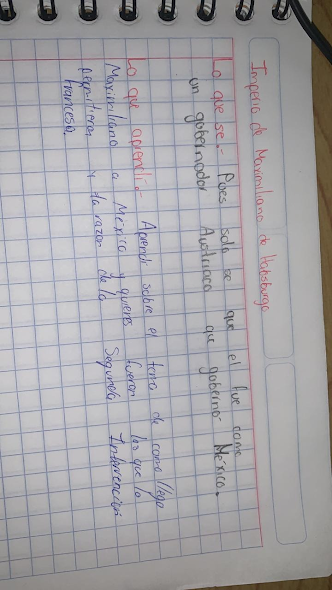 Imperio de Maximiliano de Habsburgo
Lo que se.- Pues solo se que el fue como
un gobernador Austriaco que gobernó México.
Lo que aprendí.- Aprendí sobre el tema de como llego
Maximiliano a México y quienes fueron los que lo
y la razon de la Segunda Intervención
francesa.